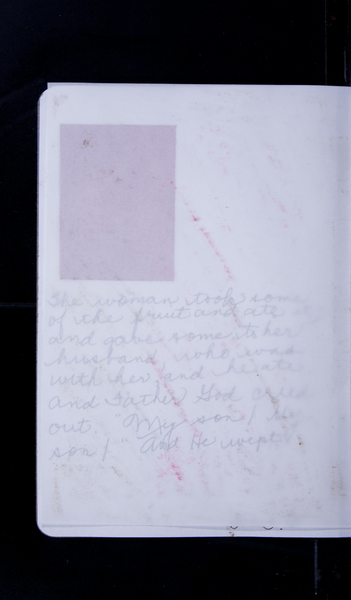 The woman took some
of the fruit and ate
and gave some to her
husband who was
with her and he ate
And Father God cried
out, "My son! 
son!" And He wept